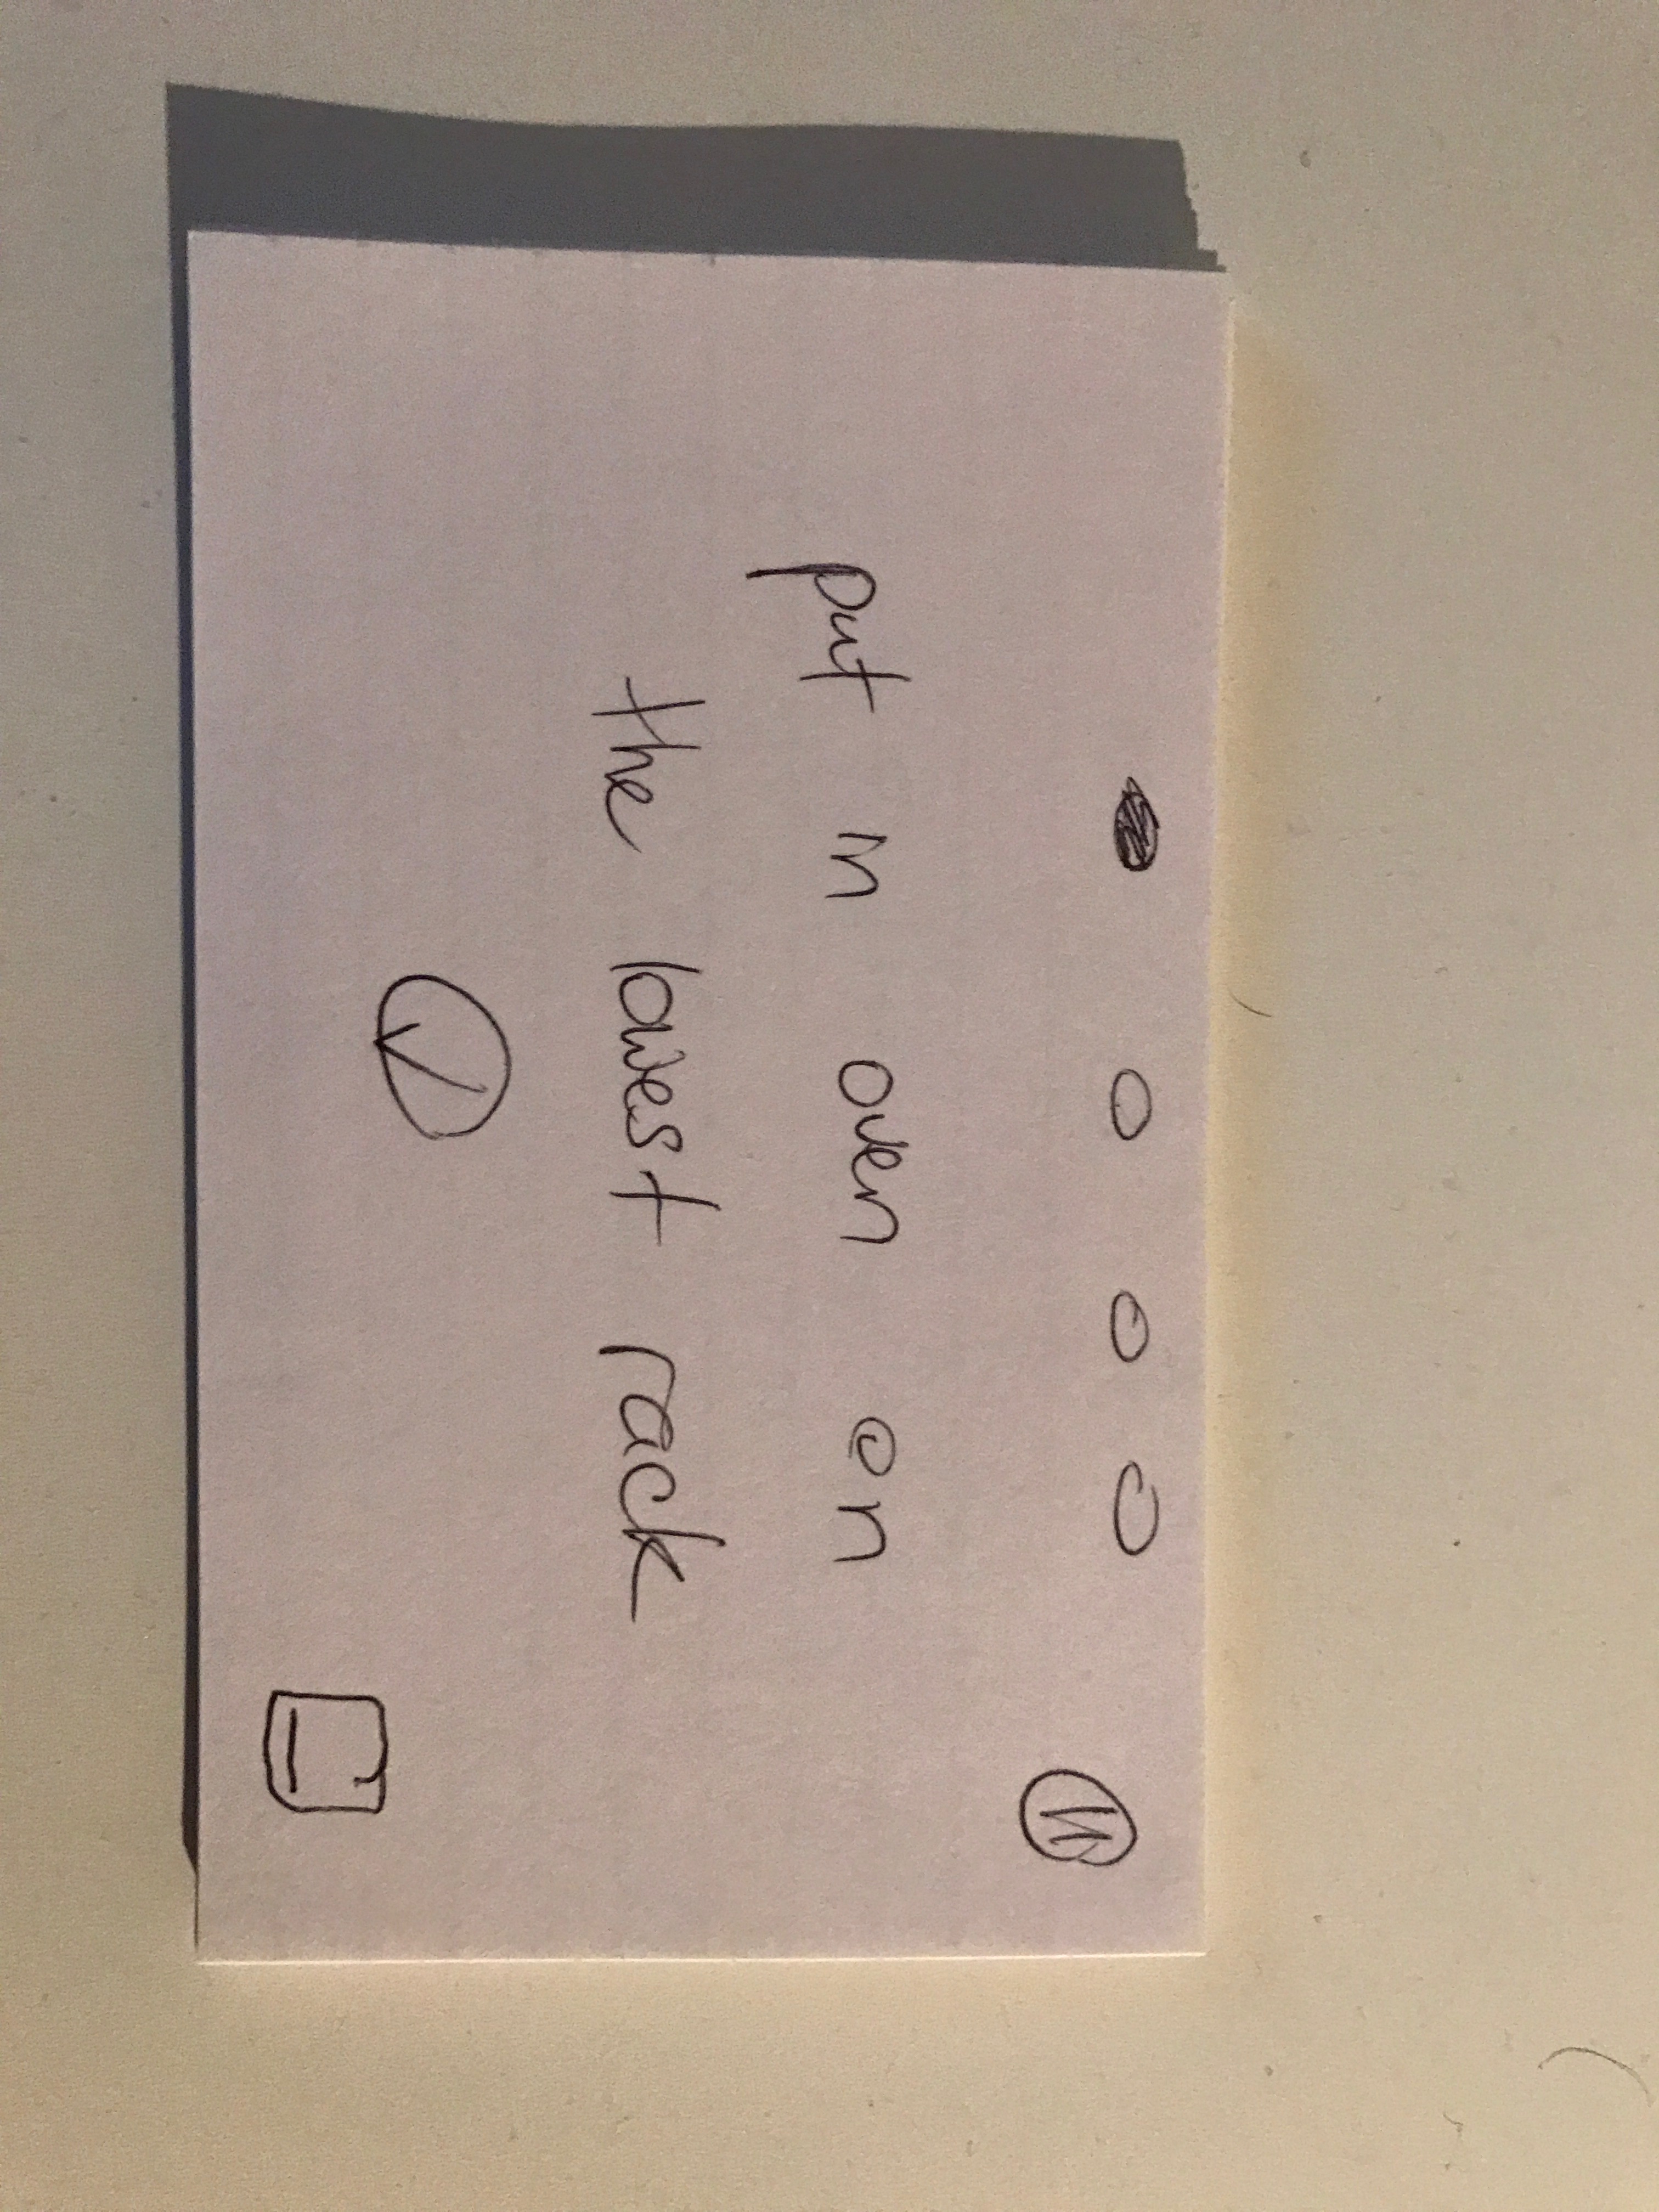 put in oven on
the lowest rack